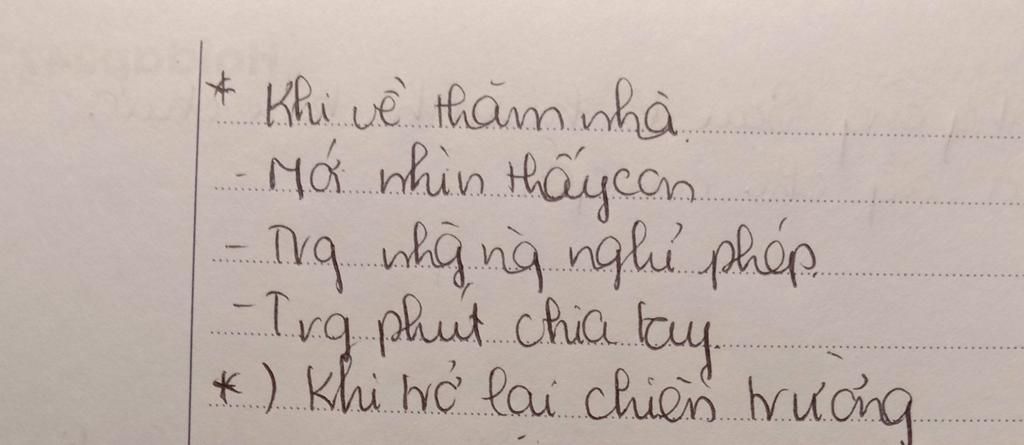 * Khi về thăm nhà.
- Mớ nhìn thấy con
- Trg nhg ng nghỉ phép.
- Trg phút chia tay.
*) Khi trở lại chiến trường